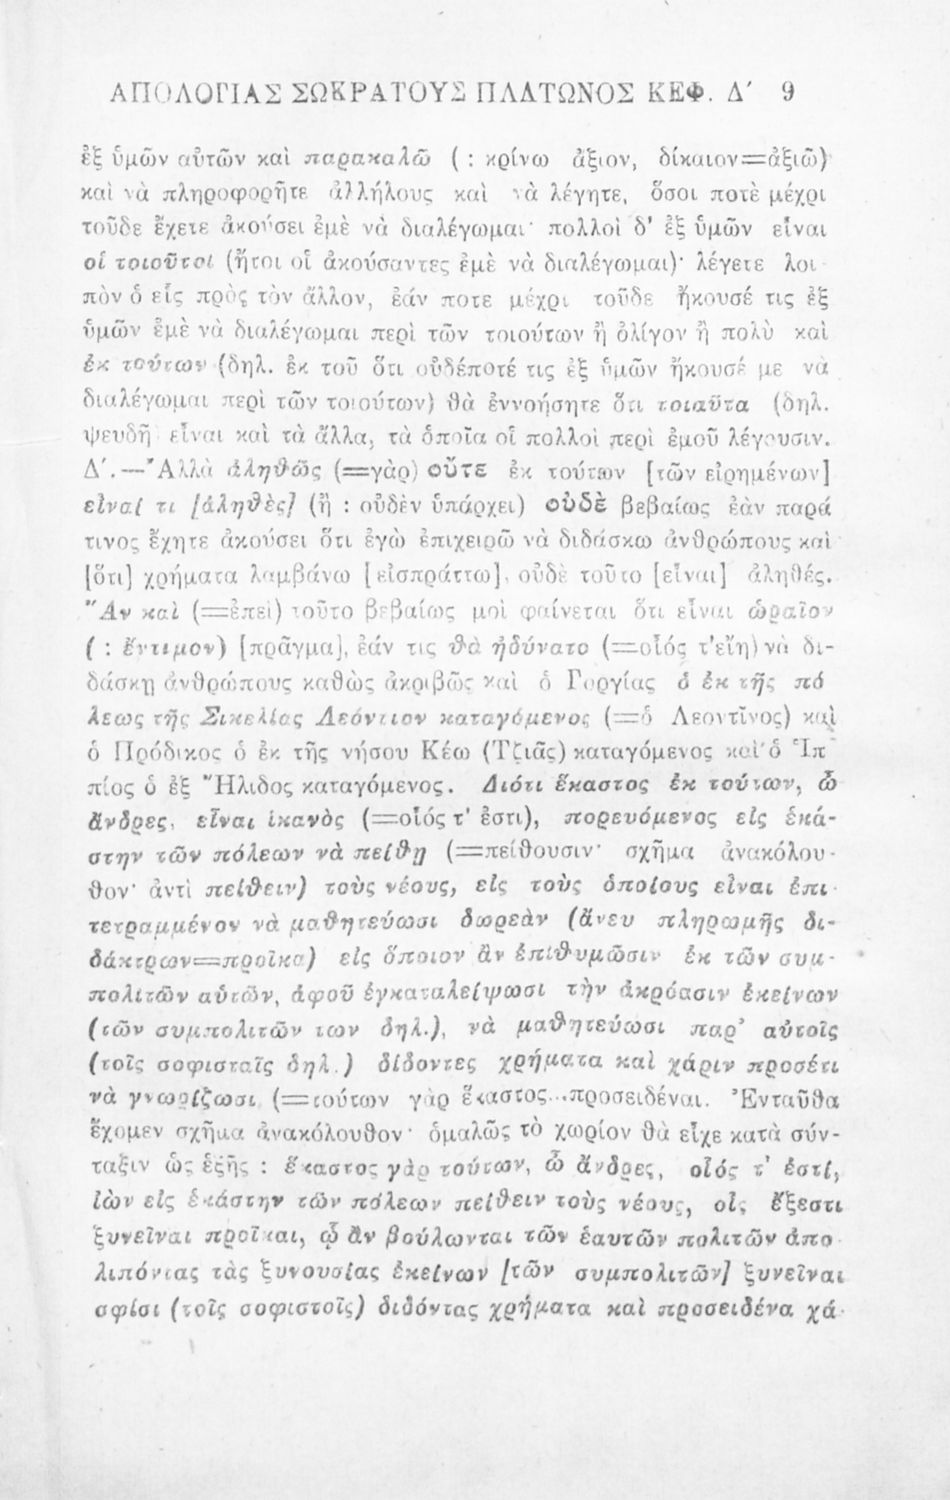 ΑΠΟΛΟΓΙΑΣ ΣΩΚΡΑΤΟΥΣ ΠΛΑΤΩΝΟΣ ΚΕΦ. Δ΄ 9
ἐξ ὑμῶν αὐτῶν καὶ παρακαλῶ ( : κρίνω ἄξιον, δίκαιον=ἀξιῶ)
καὶ νὰ πληροφορῆτε ἀλλήλους καὶ νὰ λέγητε, ὅσοι ποτὲ μέχρι
τοῦδε ἔχετε ἀκούσει ἐμὲ νὰ διαλέγωμαι· πολλοὶ δ' ἐξ ὑμῶν εἶναι
οἱ τοιοῦτοι (ἤτοι οἱ ἀκούσαντες ἐμὲ νὰ διαλέγωμαι)· λέγετε λοι-
πὸν ὁ εἷς πρὸς τὸν ἄλλον, ἐάν ποτε μέχρι τοῦδε ἤκουσέ τις ἐξ
ὑμῶν ἐμὲ νὰ διαλέγωμαι περὶ τῶν τοιούτων ἢ ὀλίγον ἢ πολὺ καὶ
ἐκ τούτων (δηλ. ἐκ τοῦ ὅτι οὐδέποτέ τις ἐξ ὑμῶν ἤκουσέ με νὰ
διαλέγωμαι περὶ τῶν τοιούτων) θὰ ἐννοήσητε ὅτι τοιαῦτα (δηλ.
ψευδῆ εἶναι καὶ τὰ ἄλλα, τὰ ὁποῖα οἱ πολλοὶ περὶ ἐμοῦ λέγουσιν.
Δ΄.—Ἀλλὰ ἀληθῶς (=γὰρ) οὔτε ἐκ τούτων [τῶν εἰρημένων]
εἶναί τι [ἀληθὲς] (ἢ : οὐδὲν ὑπάρχει) οὐδὲ βεβαίως ἐὰν παρά
τινος ἔχητε ἀκούσει ὅτι ἐγὼ ἐπιχειρῶ νὰ διδάσκω ἀνθρώπους καὶ
[ὅτι] χρήματα λαμβάνω [εἰσπράττω], οὐδὲ τοῦτο [εἶναι] ἀληθές.
Ἂν καὶ (=ἐπεὶ) τοῦτο βεβαίως μοὶ φαίνεται ὅτι εἶναι ὡραῖον
( : ἔντιμον) [πρᾶγμα], ἐάν τις θὰ ἠδύνατο (=οἷός τ' εἴη) νὰ δι-
δάσκῃ ἀνθρώπους καθὼς ἀκριβῶς καὶ ὁ Γοργίας ὁ ἐκ τῆς πό
λεως τῆς Σικελίας Λεόντιον καταγόμενος (=ὁ Λεοντῖνος) καὶ
ὁ Πρόδικος ὁ ἐκ τῆς νήσου Κέω (Τζιᾶς) καταγόμενος καὶ ὁ Ἱπ
πίος ὁ ἐξ Ἤλιδος καταγόμενος. Διότι ἕκαστος ἐκ τούτων, ὦ
ἄνδρες, εἶναι ἱκανὸς (=οἷός τ' ἐστι), πορευόμενος εἰς ἑκά-
στην τῶν πόλεων νὰ πείθῃ (=πείθουσιν· σχῆμα ἀνακόλου-
θον· ἀντὶ πείθειν) τοὺς νέους, εἰς τοὺς ὁποίους εἶναι ἐπι-
τετραμμένον νὰ μαθητεύωσι δωρεὰν (ἄνευ πληρωμῆς δι-
δάκτρων=προῖκα) εἰς ὅποιον ἂν ἐπιθυμῶσιν ἐκ τῶν συμ-
πολιτῶν αὐτῶν, ἀφοῦ ἐγκαταλείψωσι τὴν ἀκρόασιν ἐκείνων
(τῶν συμπολιτῶν των δηλ.), νὰ μαθητεύωσι παρ' αὐτοῖς
(τοῖς σοφισταῖς δηλ.) δίδοντες χρήματα καὶ χάριν προσέτι
νὰ γνωρίζωσι (=τούτων γὰρ ἕκαστος...προσειδέναι. Ἐνταῦθα
ἔχομεν σχῆμα ἀνακόλουθον· ὁμαλῶς τὸ χωρίον θὰ εἶχε κατὰ σύν-
ταξιν ὡς ἑξῆς : ἕκαστος γὰρ τούτων, ὦ ἄνδρες, οἷός τ' ἐστί,
ἰὼν εἰς ἑκάστην τῶν πόλεων πείθειν τοὺς νέους, οἷς ἔξεστι
ξυνεῖναι προῖκαι, ᾧ ἂν βούλωνται τῶν ἑαυτῶν πολιτῶν ἀπο
λιπόντας τὰς ξυνουσίας ἐκείνων [τῶν συμπολιτῶν] ξυνεῖναι
σφίσι (τοῖς σοφιστοῖς) διδόντας χρήματα καὶ προσειδένα χά-